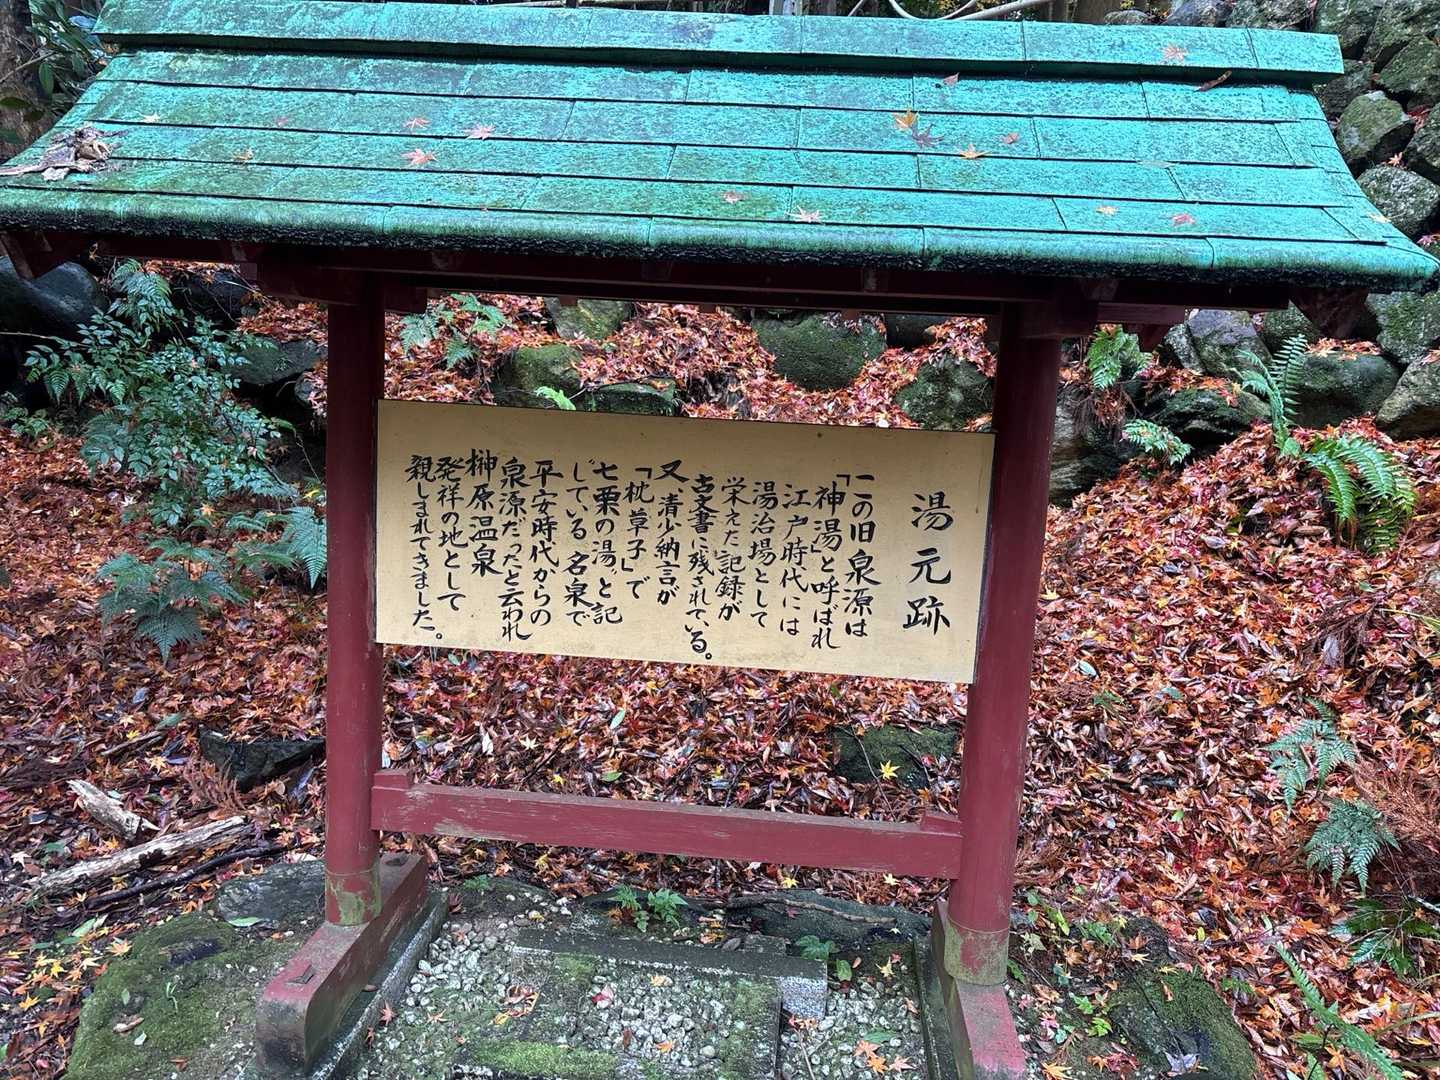 湯元跡
一この旧泉源は
「神湯」と呼ばれ
江戸時代には
湯治場として
栄えた記録が
古文書に残されている。
又清少納言が
「枕草子」で
七栗の湯と記
じている名泉で
平安時代からの
泉源だったと云われ
榊原温泉
発祥の地として
親しまれてきました。